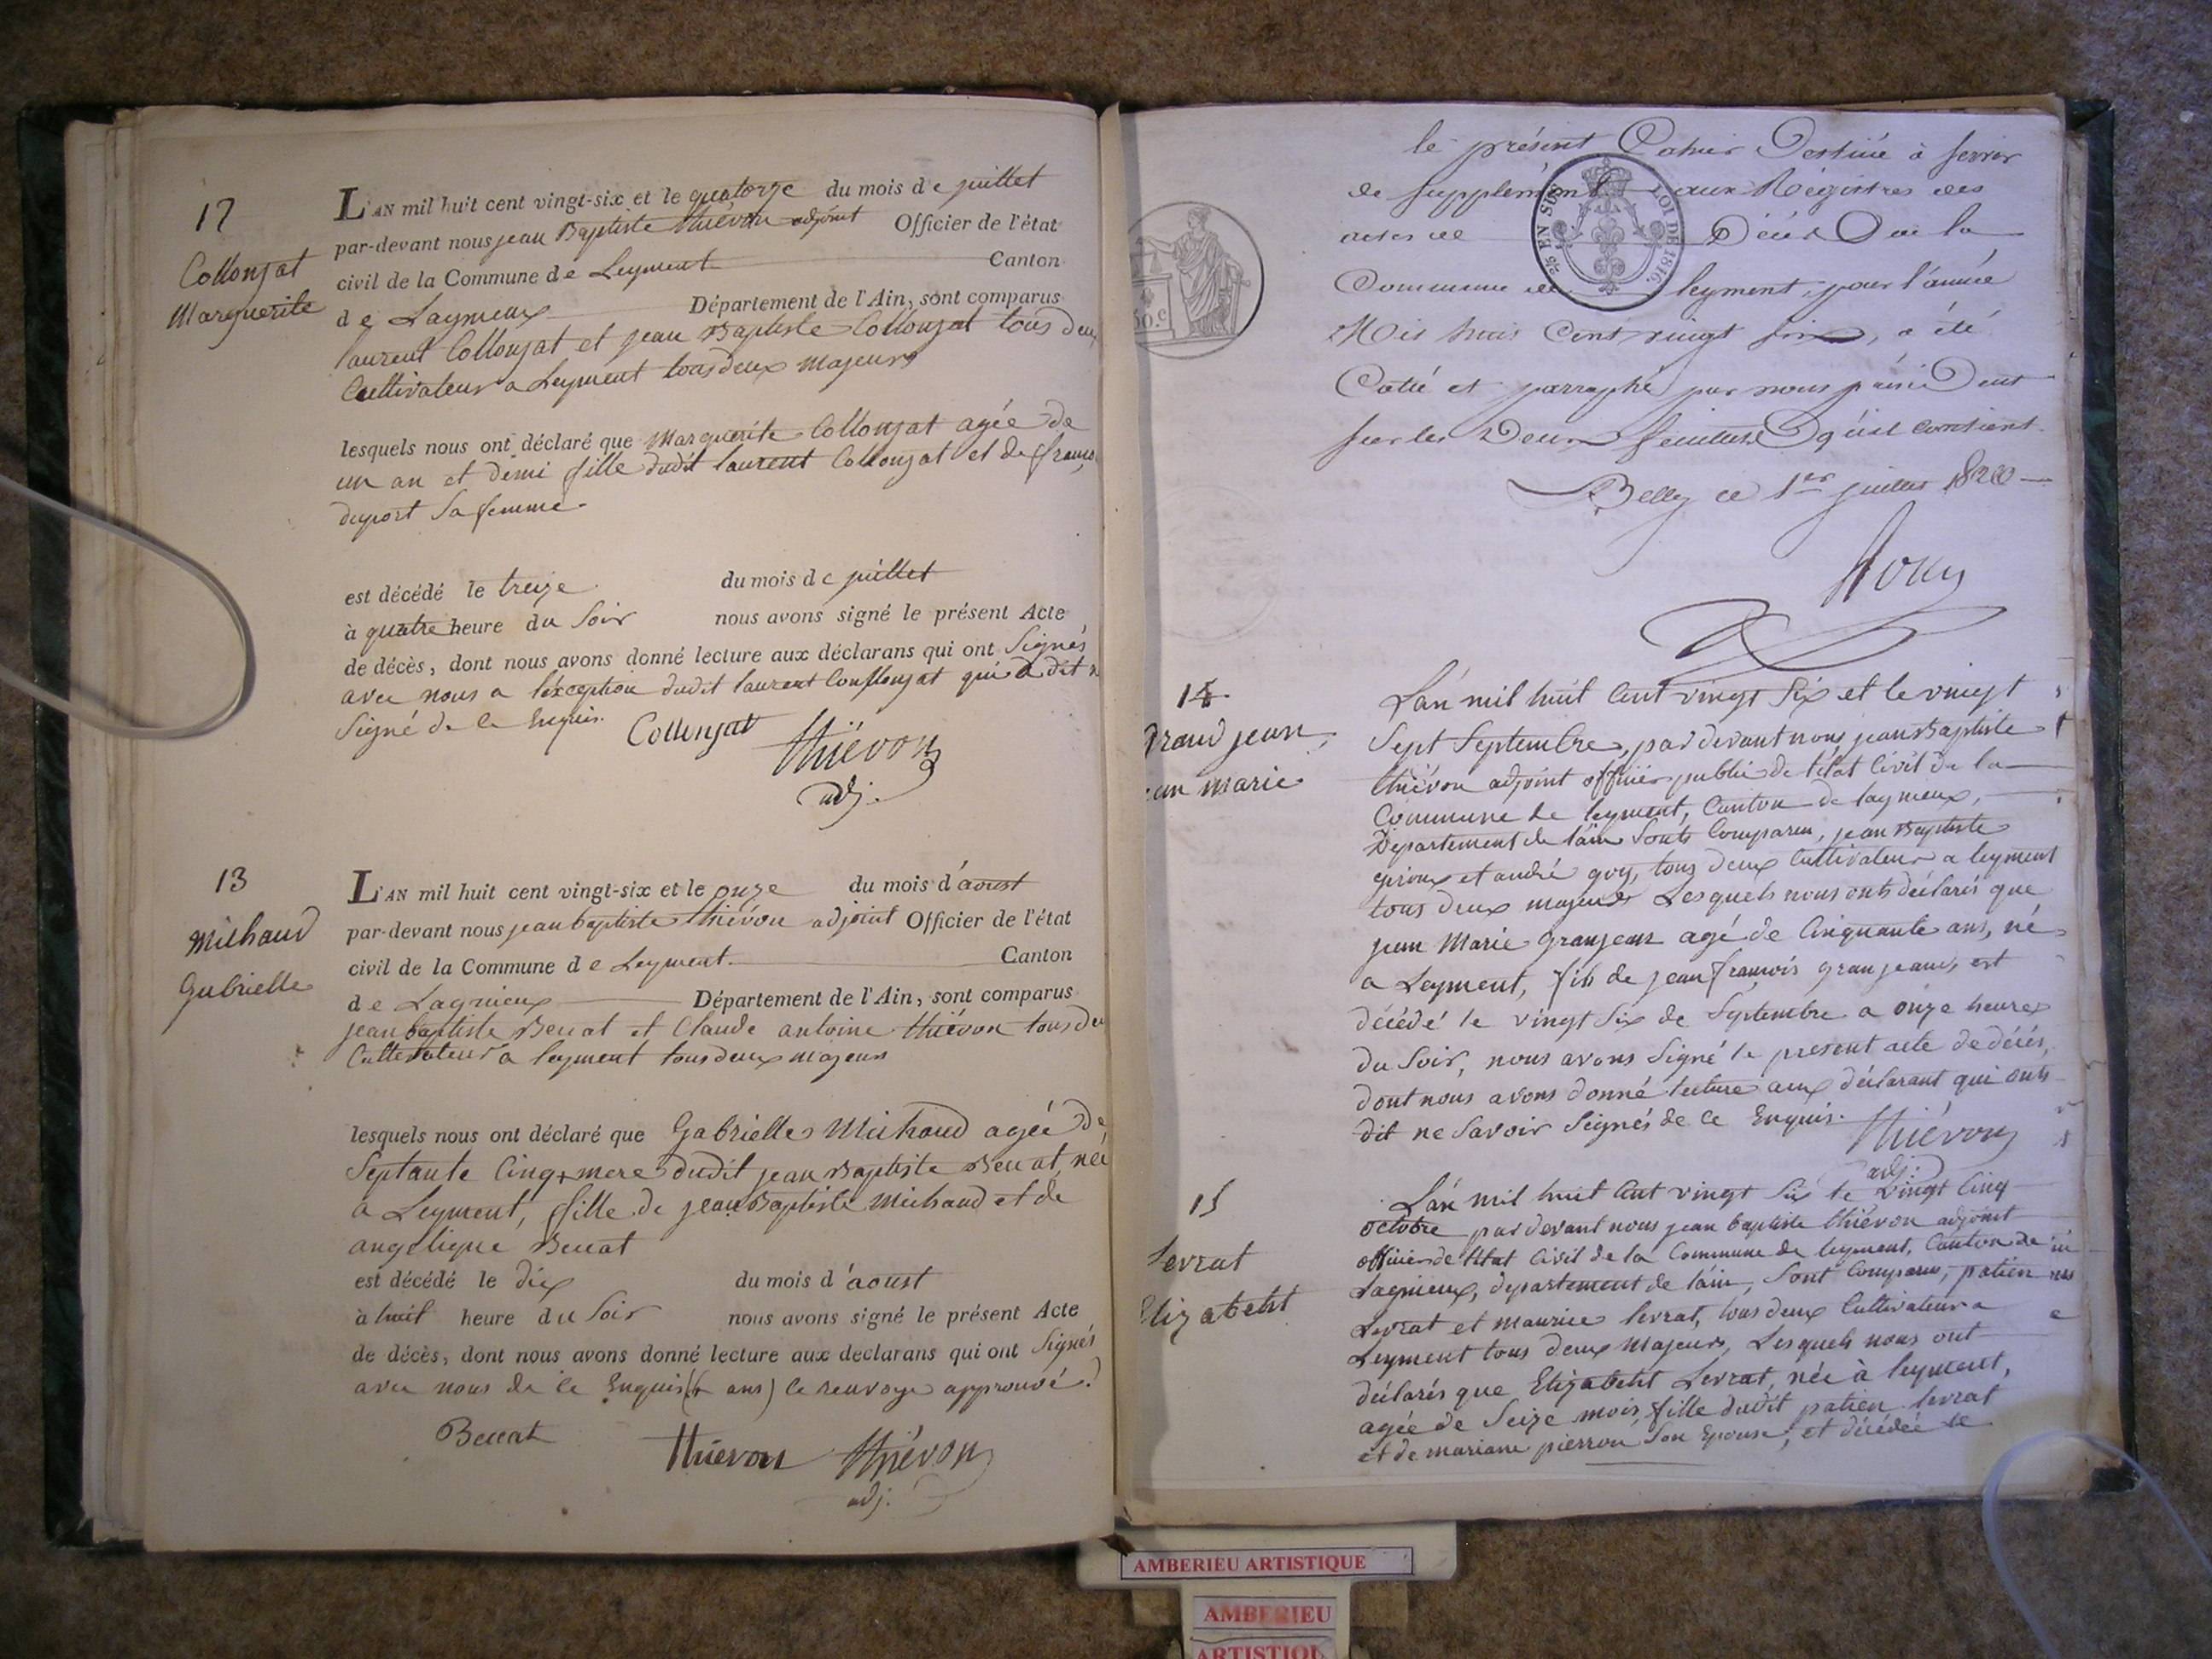 12
Collonjat
Marguerite
L'AN mil huit cent vingt-six et le quatorze du mois de juillet
par-devant nous jean Baptiste thiévon adjoint Officier de l'état
civil de la Commune de Leyment Canton
de Lagnieux Département de l'Ain, sont comparus
laurent Collonjat et jean Baptiste Collonjat tous deux
Cultivateur a Leyment tous deux majeurs
lesquels nous ont déclaré que Marguerite Collonjat agée de
un an et demi fille dudit laurent Collonjat et de
deport sa femme
est décédé le treize du mois de juillet
à quatre heure du Soir nous avons signé le présent Acte
de décès, dont nous avons donné lecture aux déclarans qui ont Signés
avec nous a l'exception dudit laurent Conllonjat qui a dit
Signé de ce Enquis.
Collonjat
thiévon
adj.
13
Michaud
Gabrielle
L'AN mil huit cent vingt-six et le onze du mois d'aoust
par-devant nous jean baptiste thiévon adjoint Officier de l'état
civil de la Commune de Leyment Canton
de Lagnieux Département de l'Ain, sont comparus
jean baptiste Beccat et Claude antoine thiévon tous
Cultivateur a leyment tous deux majeurs
lesquels nous ont déclaré que Gabrielle Michaud agée de
Septante Cinq + mere dudit jean Baptiste Beccat, née
a Leyment, fille de jean Baptiste Michaud et de
angelique Beccat
est décédé le dix du mois d'aoust
à huit heure du Soir nous avons signé le présent Acte
de décès, dont nous avons donné lecture aux declarans qui ont Signés
avec nous de ce Enquis (+ ans) le renvoye approuvé.
Beccat
thievon thiévon
adj.
le présent Cahier Destiné à servir
de supplément aux Régistres des
actes de Décès De la
25/c EN SUS
LOI DE 1816.
50.c
Commune de leyment, pour l'année
Mil huit Cent vingt six, a été
Cotté et parraphé par nous président
sur les Deux feuillets qu'il contient
Belley ce 1er juillet 1826
14
Grand jean
jean marie
L'an mil huit Cent vingt Six et le vingt
Sept Septembre, par devant nous jean Baptiste
thiévon adjoint officier public de l'état Civil de la
Commune de leyment, Canton de lagnieux,
Département de l'ain Sonts Comparu, jean Baptiste
giroux et andré goy, tous deux Cultivateur a leyment
tous deux majeurs Lesquels nous onts déclarés que
jean Marie granjean agé de Cinquante ans, né
a Leyment, fils de jean françois granjean, est
décédé le vingt Six de Septembre a onze heures
du Soir, nous avons Signé le present acte de décés,
dont nous avons donné lecture aux déclarant qui onts
dit ne Savoir Signés de ce Enquis.
thiévon
adj.
15
Levrat
Elizabeht
L'an mil huit Cent vingt Six le vingt Cinq
octobre par devant nous jean baptiste thiévon adjoint
officier de l'état Civil de la Commune de leyment, Canton de
Lagnieux, departement de l'ain, Sont Comparus, patien
Levrat et maurice levrat, tous deux Cultivateur a
Leyment tous deux Majeurs, Lesquels nous ont
déclarés que Elizabeht Levrat, née à leyment,
agée de Seize mois, fille dudit patien levrat
et de mariane pierron Son Epouse, et décédée le
AMBERIEU ARTISTIQUE
AMBERIEU
ARTISTIQU